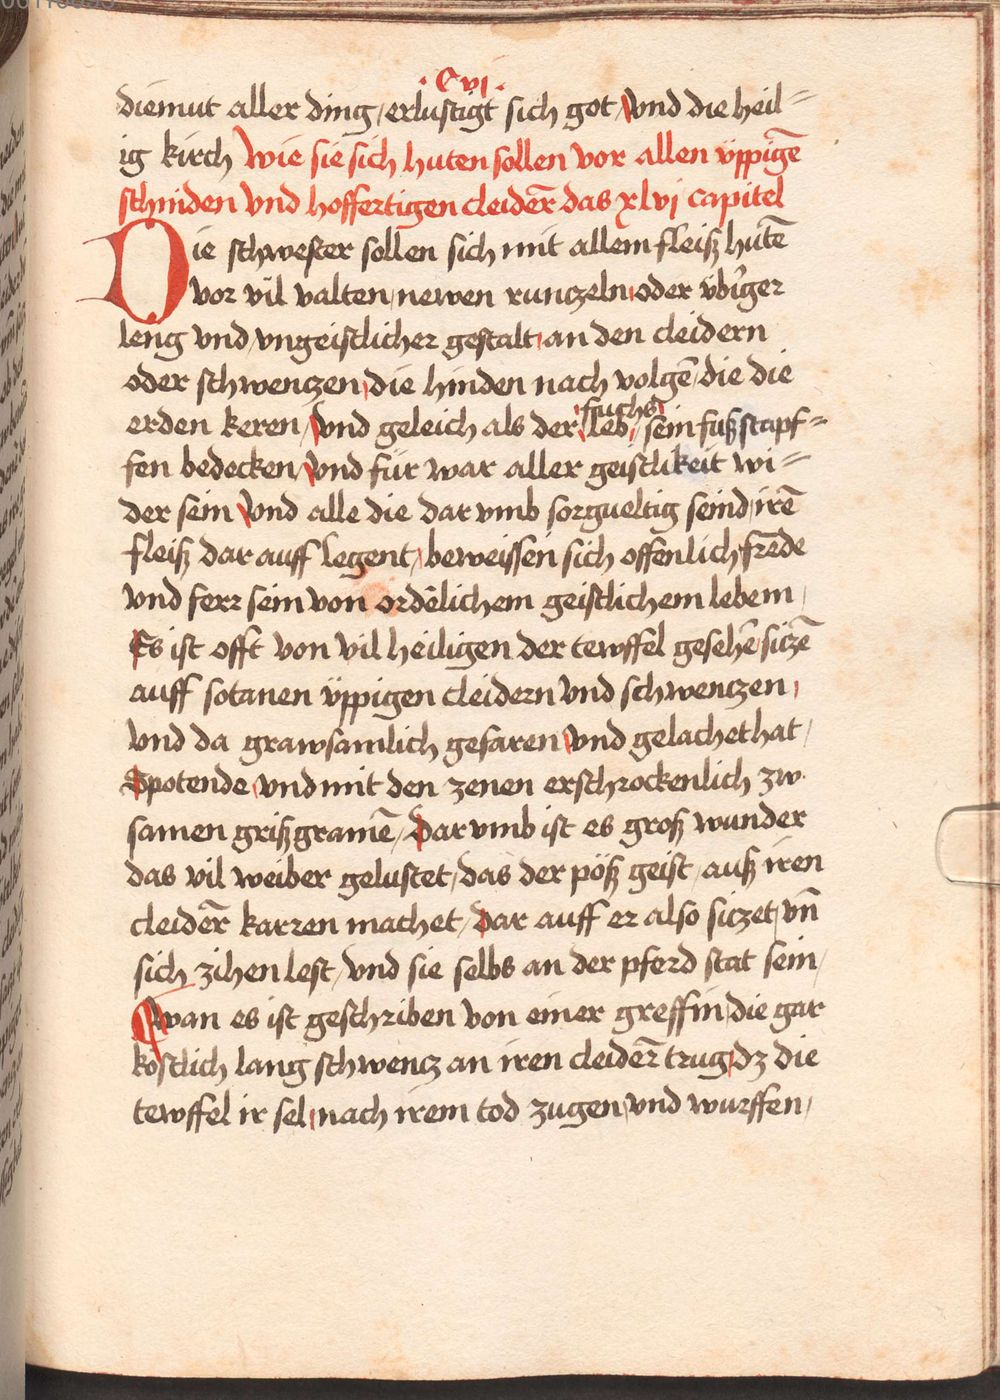 · Cvj ·
diemut aller ding / erlustigt sich got / Vnd die heil=
ig kirch Wie sie sich huten sollen vor allen üppigē
schniden vnd hoffertigen cleidēr das xlvj capitel
Die schwester sollen sich mit allem fleiß hutē
vor vil valten / newen runczeln / oder vbiger
leng vnd vngeistlicher gestalt / an den cleidern
oder schwenczen / die hinden nach volgē / die die
fuchs
erden keren / Vnd geleich als der leb / sein fußstapf=
fen bedecken / Vnd für war aller geistlikeit wi=
der sein / Vnd alle die dar vmb sorgueltig seind / irē
fleiß dar auff legent / beweissen sich offenlich frēde
vnd ferr sein von ordēlichem geistlichem lebem /
Es ist offt von vil heiligen der tewffel gesehē siczē
auff sotanen üppigen cleidern vnd schwenczen /
vnd da grawsamlich gefaren / Vnd gelachet hat /
Spotende / vnd mit den zenen erschrockenlich zw
samen grißgramē / Dar vmb ist es groß wunder
das vil weiber gelustet / das der pöß geist / auß iren
cleidēr karren machet / Dar auff er also siczet / vn̄
sich zihen lest / vnd sie selbs an der pferd stat sein /
Wan es ist geschriben von einer greffin / die gar
köstlich lang schwencz an iren cleidēr trug / dz die
tewffel ir sel / nach irem tod zugen / vnd wurffen /